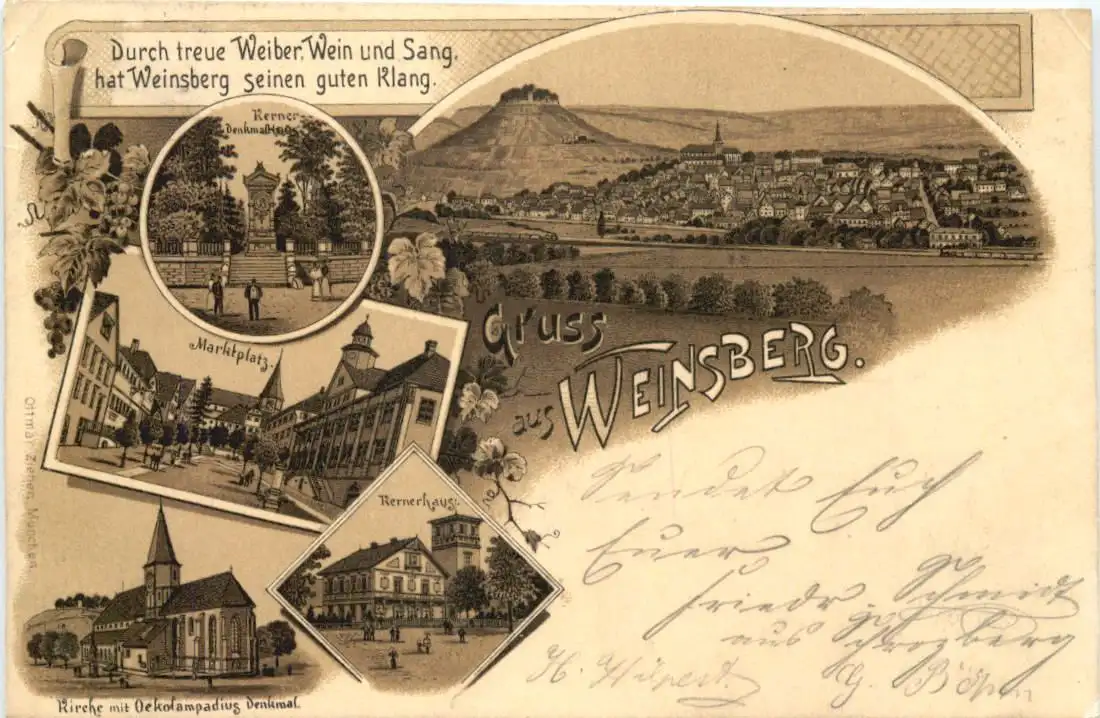 Durch treue Weiber, Wein und Sang,
hat Weinsberg seinen guten Klang.
Kerner-
Denkmal
Marktplatz.
Gruss
aus WEINSBERG.
Kernerhaus.
Kirche mit Oekolampadius Denkmal.
Ottmar Zieher, München
Sendet Euch
Euer
Friedr. Schmidt
aus Schrozberg
H. Hilpert.
G.